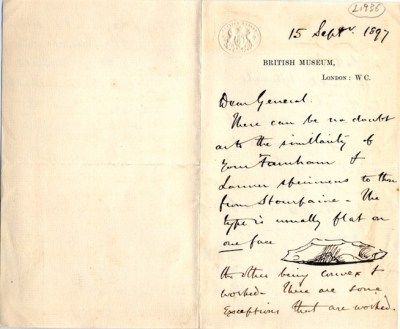 L1936
15 Septr. 1897
BRITISH MUSEUM,
LONDON: W.C.
Dear General.
There can be no doubt
as to the similarity of
your Farnham &
Larmer specimens to those
from Stourpaine - The
type is usually flat on
one face
the other being convex &
worked. There are some
exceptions that are worked